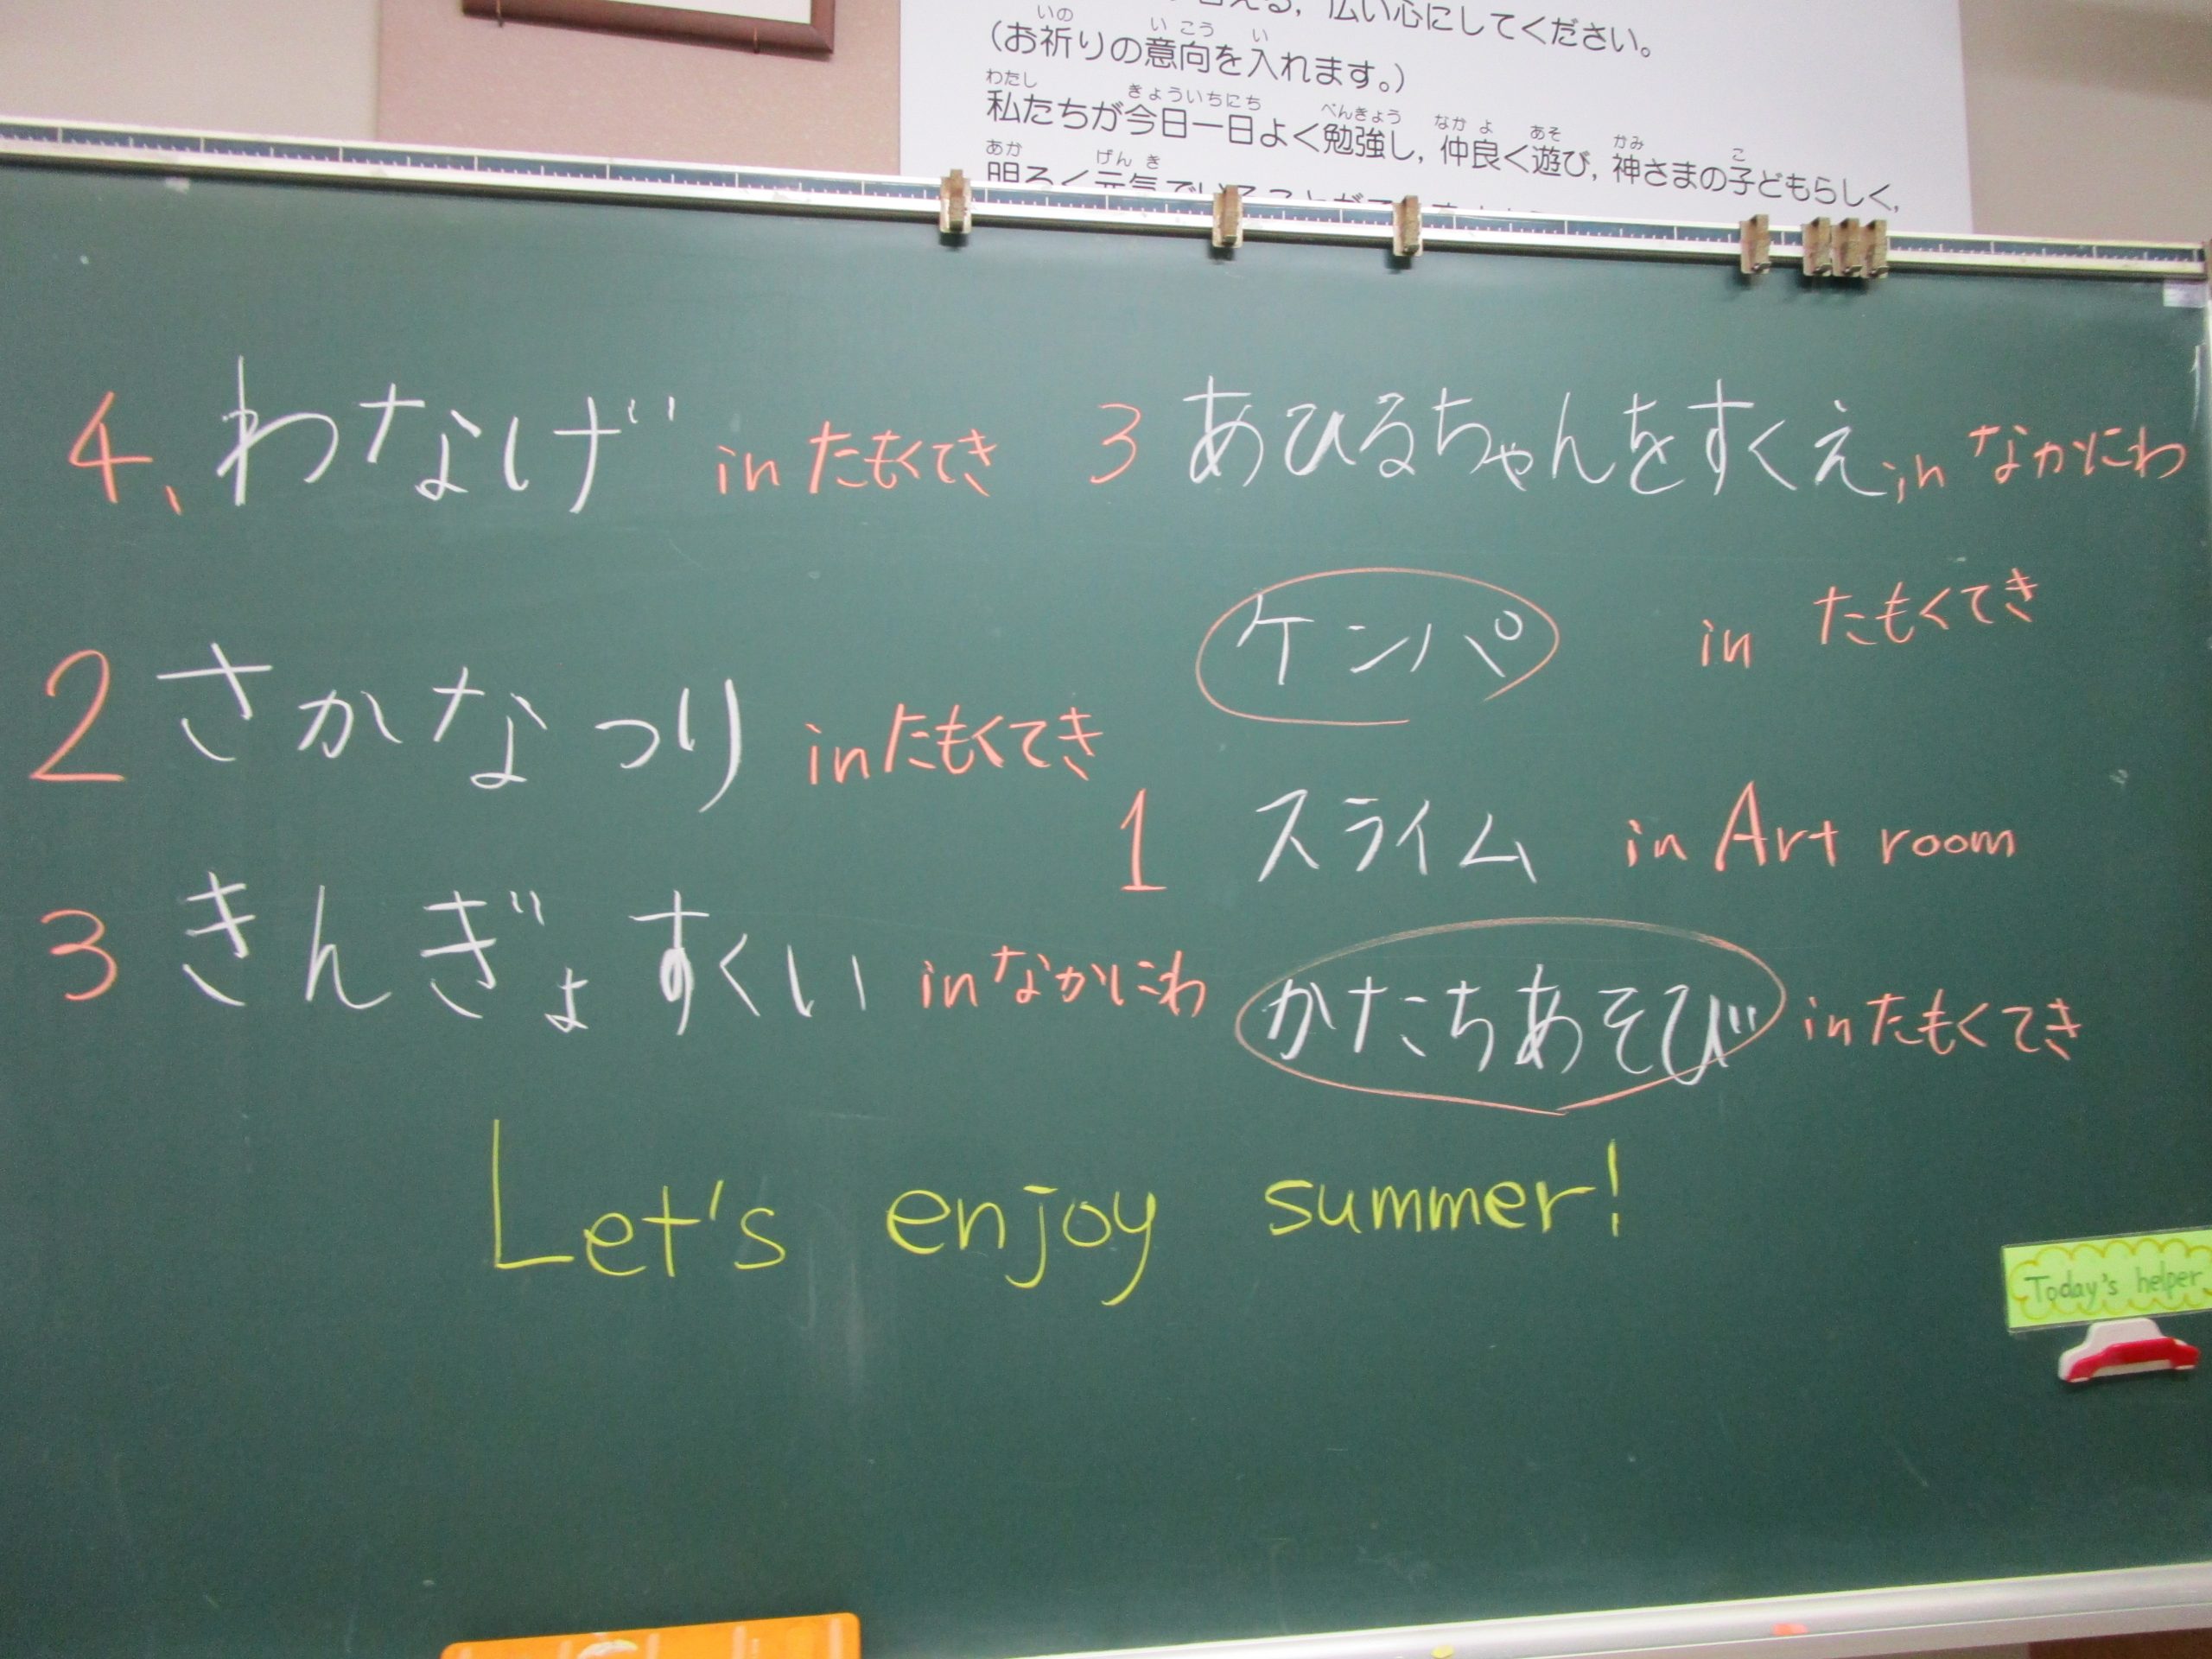 広い心にしてください。
(お祈りの意向を入れます。)
いの い こう い
私たちが今日一日よく勉強し,仲良く遊び,神さまの子どもらしく,
わたし きょういちにち べんきょう なか よ あそ かみ こ
明るく元気で
あか げん き
4、わなげ in たもくてき
3 あひるちゃんをすくえ in なかにわ
ケンパ in たもくてき
2 さかなつり in たもくてき
1 スライム in Art room
3 きんぎょすくい in なかにわ
かたちあそび in たもくてき
Let's enjoy summer!
Today's helper